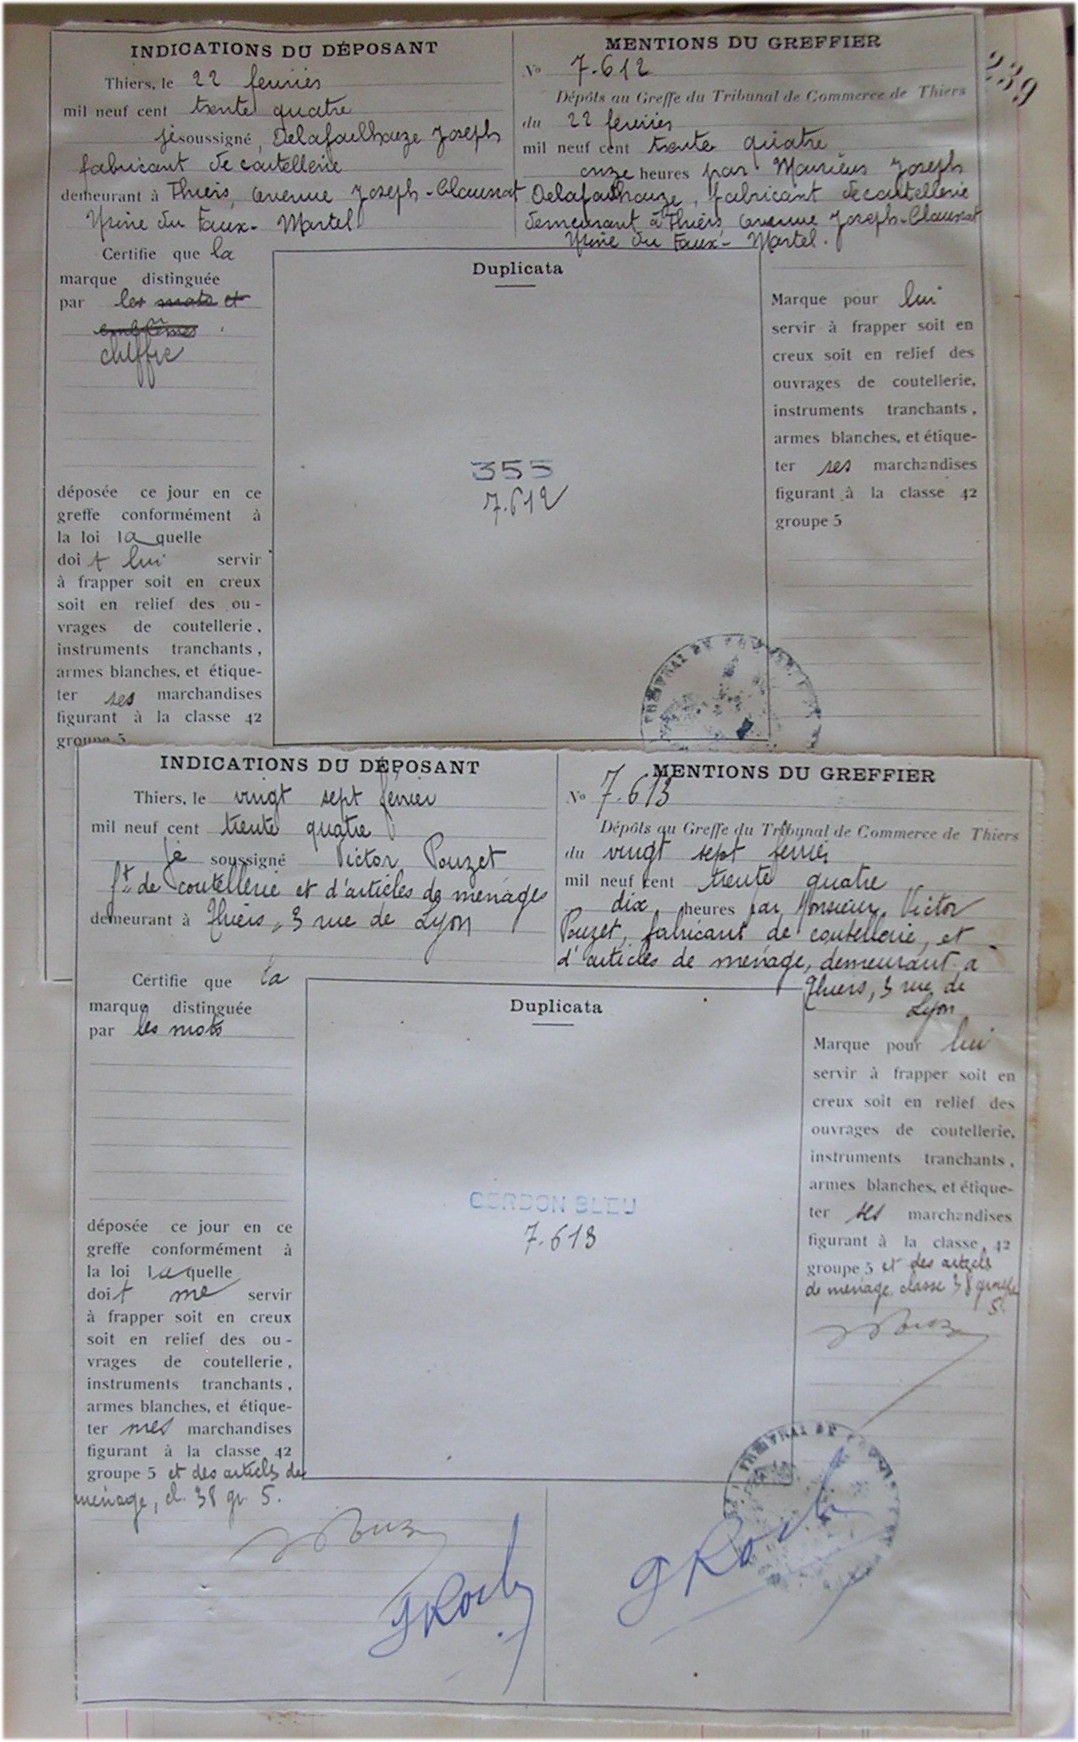 239
INDICATIONS DU DÉPOSANT
Thiers, le 22 fevrier
mil neuf cent trente quatre
je soussigné, Delafoulhouze Joseph
fabricant de coutellerie
demeurant à Thiers, avenue Joseph-Claussat
Usine du Faux-Martel
Certifie que la
marque distinguée
par les mots et
emblêmes
chiffre
déposée ce jour en ce
greffe conformément à
la loi laquelle
doit lui servir
à frapper soit en creux
soit en relief des ou-
vrages de coutellerie,
instruments tranchants,
armes blanches, et étique-
ter ses marchandises
figurant à la classe 42
groupe 5
MENTIONS DU GREFFIER
No 7.612
Dépôts au Greffe du Tribunal de Commerce de Thiers
du 22 fevrier
mil neuf cent trente quatre
onze heures par Monsieur Joseph
Delafoulhouze, fabricant de coutellerie
demeurant à Thiers, avenue Joseph-Claussat
Usine du Faux-Martel.
Duplicata
355
7.612
Marque pour lui
servir à frapper soit en
creux soit en relief des
ouvrages de coutellerie,
instruments tranchants,
armes blanches, et étique-
ter ses marchandises
figurant à la classe 42
groupe 5
INDICATIONS DU DÉPOSANT
Thiers, le vingt sept fevrier
mil neuf cent trente quatre
je soussigné Victor Pouzet
ft. de coutellerie et d'articles de ménages
demeurant à Thiers, 3 rue de Lyon
Certifie que la
marque distinguée
par les mots
déposée ce jour en ce
greffe conformément à
la loi laquelle
doit me servir
à frapper soit en creux
soit en relief des ou-
vrages de coutellerie,
instruments tranchants,
armes blanches, et étique-
ter mes marchandises
figurant à la classe 42
groupe 5 et des articles de
ménage, cl. 38 gr. 5.
MENTIONS DU GREFFIER
No 7.613
Dépôts au Greffe du Tribunal de Commerce de Thiers
du vingt sept fevrier
mil neuf cent trente quatre
dix heures par Monsieur Victor
Pouzet, fabricant de coutellerie, et
d'articles de ménage, demeurant à
Thiers, 3 rue de
Lyon
Duplicata
CORDON BLEU
7.613
Marque pour lui
servir à frapper soit en
creux soit en relief des
ouvrages de coutellerie,
instruments tranchants,
armes blanches, et étique-
ter ses marchandises
figurant à la classe 42
groupe 5 et des articles
de ménage, classe 38 groupe
5.
GRoch
GRoch